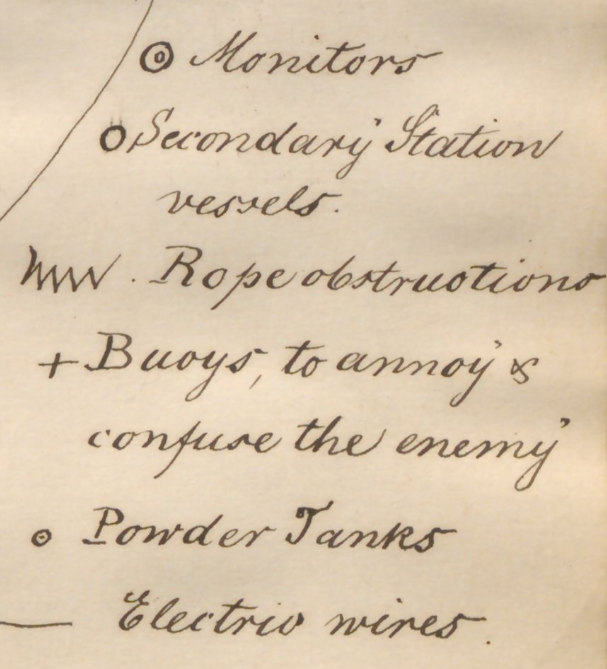 Monitors
Secondary Station
vessels.
Rope obstructions
Buoys, to annoy &
confuse the enemy
Powder Tanks
Electric wires.